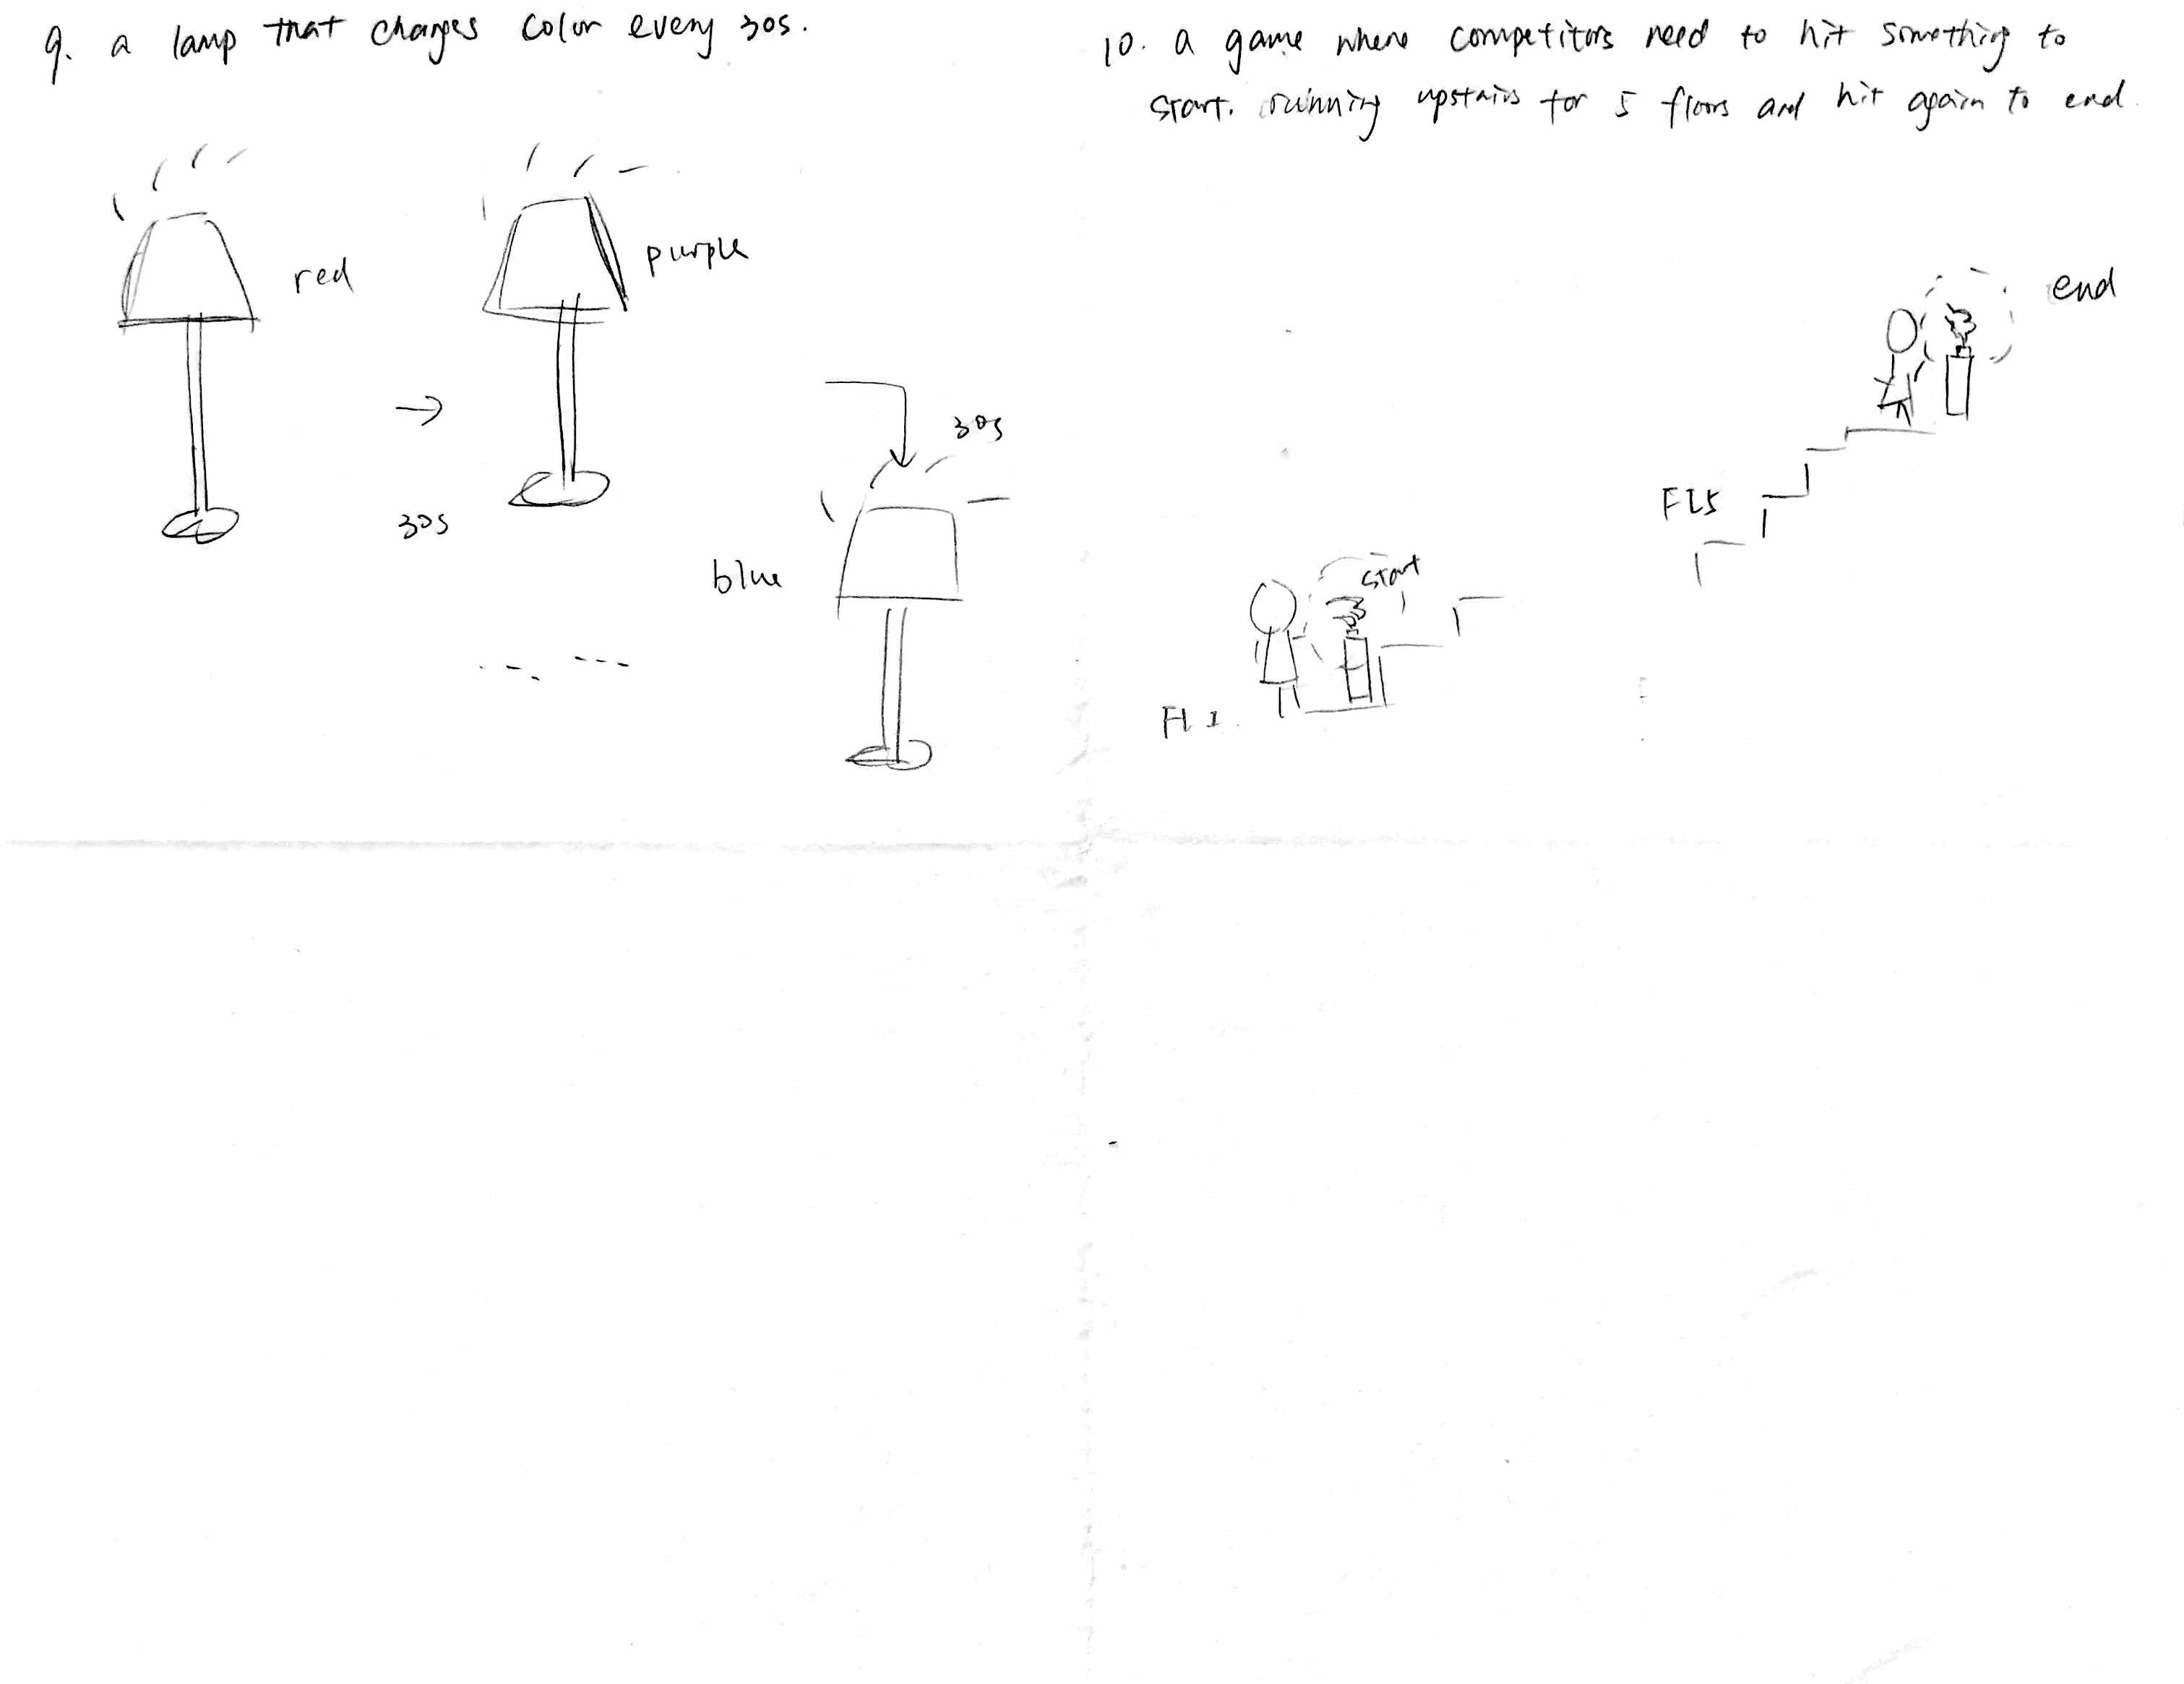 9. a lamp that changes color every 30s.
red
purple
30s
30s
blue
10. a game where competitors need to hit something to
start. running upstairs for 5 floors and hit again to end.
end
FL5
start
FL 1.